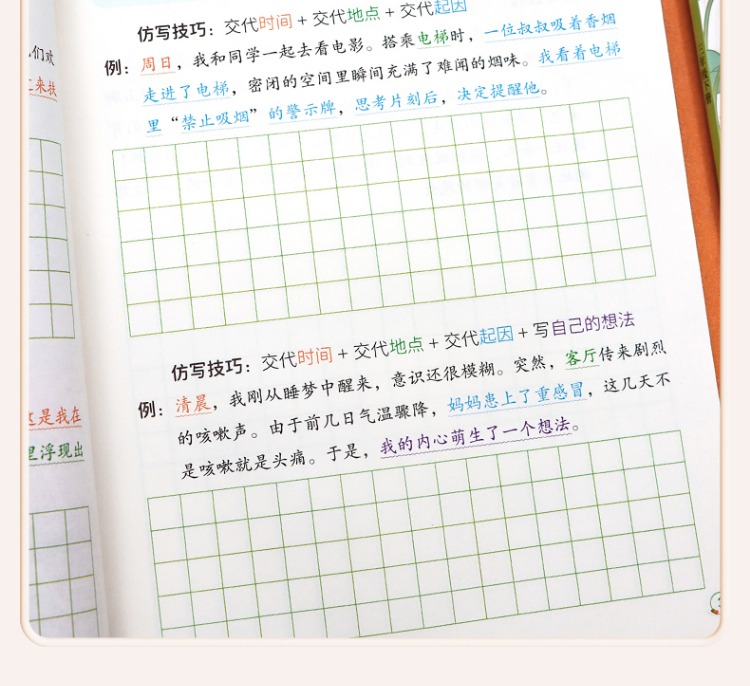 仿写技巧：交代时间 + 交代地点 + 交代起因
例：周日，我和同学一起去看电影。搭乘电梯时，一位叔叔吸着香烟
走进了电梯，密闭的空间里瞬间充满了难闻的烟味。我看着电梯
里“禁止吸烟”的警示牌，思考片刻后，决定提醒他。
仿写技巧：交代时间 + 交代地点 + 交代起因 + 写自己的想法
例：清晨，我刚从睡梦中醒来，意识还很模糊。突然，客厅传来剧烈
的咳嗽声。由于前几日气温骤降，妈妈患上了重感冒，这几天不
是咳嗽就是头痛。于是，我的内心萌生了一个想法。
们欢
来扶
这是我在
里浮现出